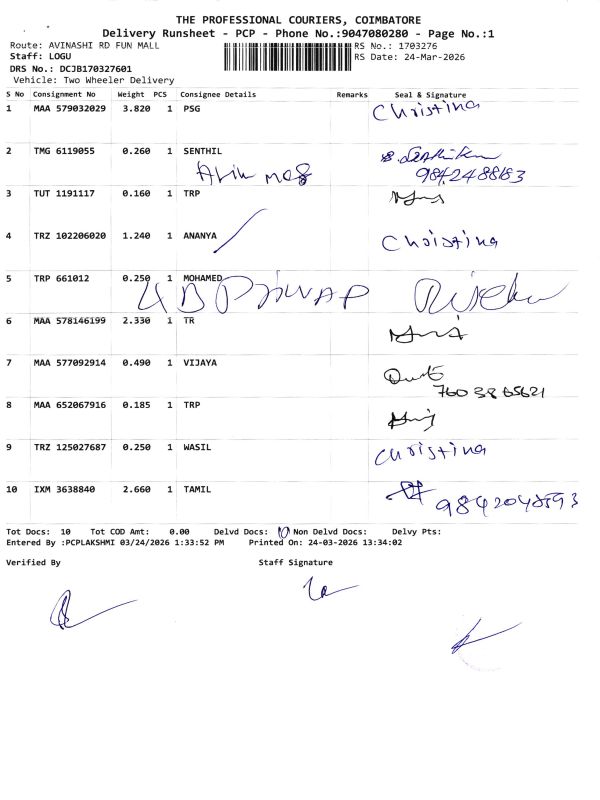 THE PROFESSIONAL COURIERS, COIMBATORE
Delivery Runsheet - PCP - Phone No.:9047080280 - Page No.:1
Route: AVINASHI RD FUN MALL RS No.: 1703276
Staff: LOGU RS Date: 24-Mar-2026
DRS No.: DCJB170327601
Vehicle: Two Wheeler Delivery
S No Consignment No Weight PCS Consignee Details Remarks Seal & Signature
1 MAA 579032029 3.820 1 PSG Christina
2 TMG 6119055 0.260 1 SENTHIL
3 TUT 1191117 0.160 1 TRP
4 TRZ 102206020 1.240 1 ANANYA Christina
5 TRP 661012 0.250 1 MOHAMED
6 MAA 578146199 2.330 1 TR
7 MAA 577092914 0.490 1 VIJAYA
8 MAA 652067916 0.185 1 TRP
9 TRZ 125027687 0.250 1 WASIL Christina
10 IXM 3638840 2.660 1 TAMIL
Tot Docs: 10 Tot COD Amt: 0.00 Delvd Docs: 10 Non Delvd Docs: Delvy Pts:
Entered By :PCPLAKSHMI 03/24/2026 1:33:52 PM Printed On: 24-03-2026 13:34:02
Verified By Staff Signature